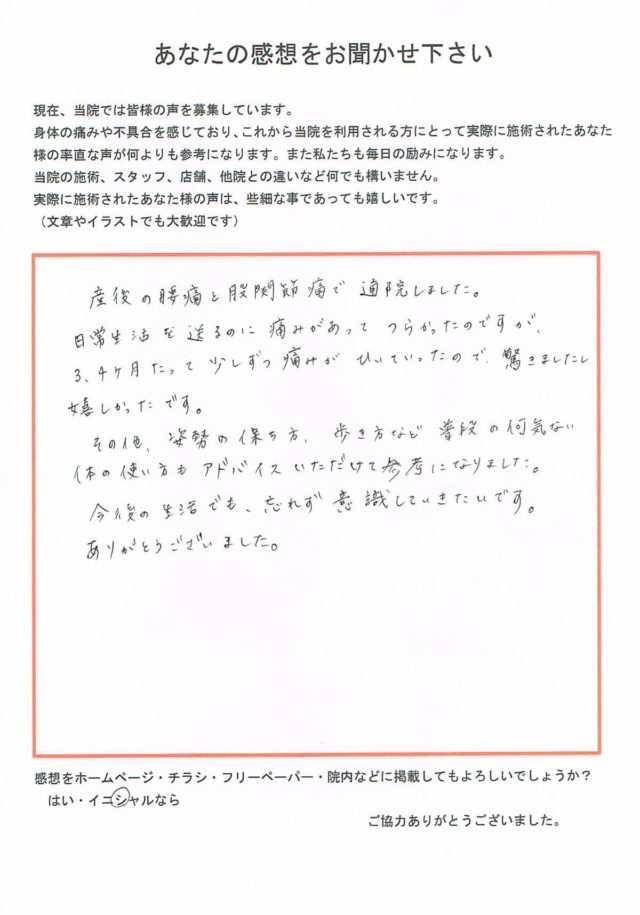 あなたの感想をお聞かせ下さい
現在、当院では皆様の声を募集しています。
身体の痛みや不具合を感じており、これから当院を利用される方にとって実際に施術されたあなた
様の率直な声が何よりも参考になります。また私たちも毎日の励みになります。
当院の施術、スタッフ、店舗、他院との違いなど何でも構いません。
実際に施術されたあなた様の声は、些細な事であっても嬉しいです。
（文章やイラストでも大歓迎です）
産後の腰痛と股関節痛で通院しました。
日常生活を送るのに痛みがあってつらかったのですが、
3、4ヶ月たって少しずつ痛みがひいていったので、驚きましたし
嬉しかったです。
その他、姿勢の保ち方、歩き方など普段の何気ない
体の使い方もアドバイスいただけて参考になりました。
今後の生活でも、忘れず意識していきたいです。
ありがとうございました。
感想をホームページ・チラシ・フリーペーパー・院内などに掲載してもよろしいでしょうか？
はい・イニシャルなら
ご協力ありがとうございました。